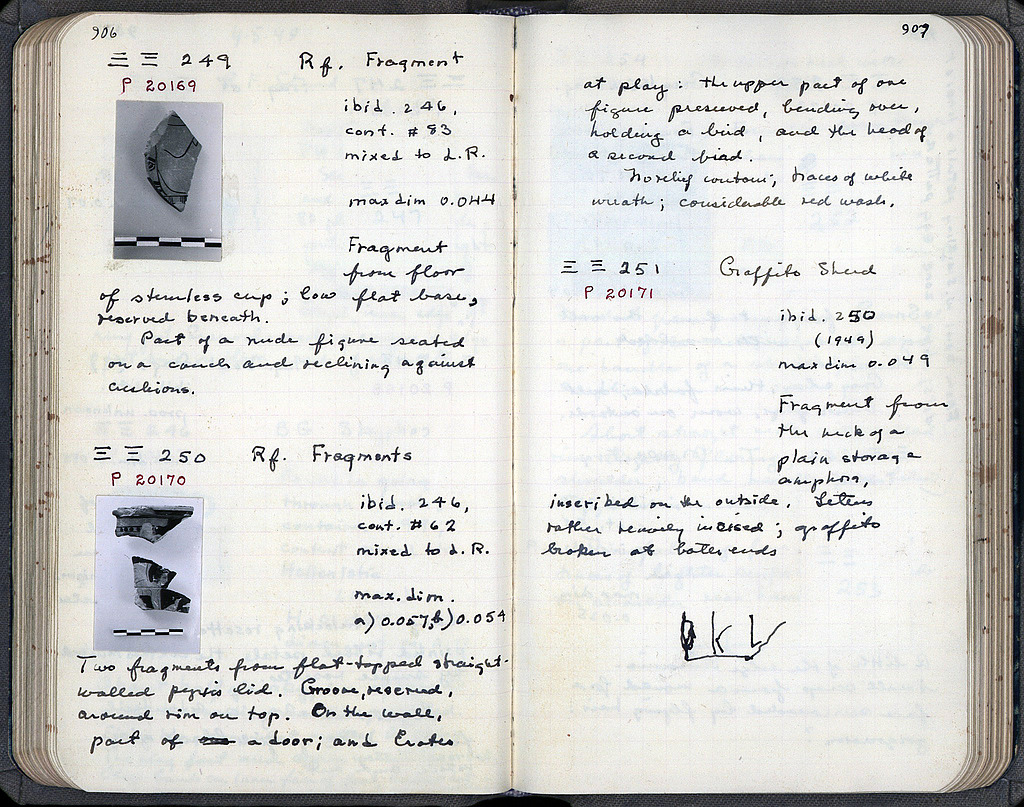 906
Ξ Ξ 249 Rf. Fragment
P 20169
ibid. 246,
cont. # 83
mixed to L.R.
max dim 0.044
Fragment
from floor
of stemless cup; low flat base,
reserved beneath.
Part of a nude figure seated
on a couch and reclining against
cushions.
Ξ Ξ 250 Rf. Fragments
P 20170
ibid. 246,
cont. # 62
mixed to L.R.
max. dim.
a) 0.057, b) 0.054
Two fragments from flat-topped straight-
walled pyxis lid. Groove, reserved,
around rim on top. On the wall,
part of a door; and Erotes
907
at play: the upper part of one
figure preserved, bending over,
holding a bird, and the head of
a second bird.
No relief contour; traces of white
wreath; considerable red wash.
Ξ Ξ 251 Graffito Sherd
P 20171
ibid. 250
(1949)
max dim 0.049
Fragment from
the neck of a
plain storage
amphora,
inscribed on the outside. Letters
rather finely incised; graffito
broken at both ends